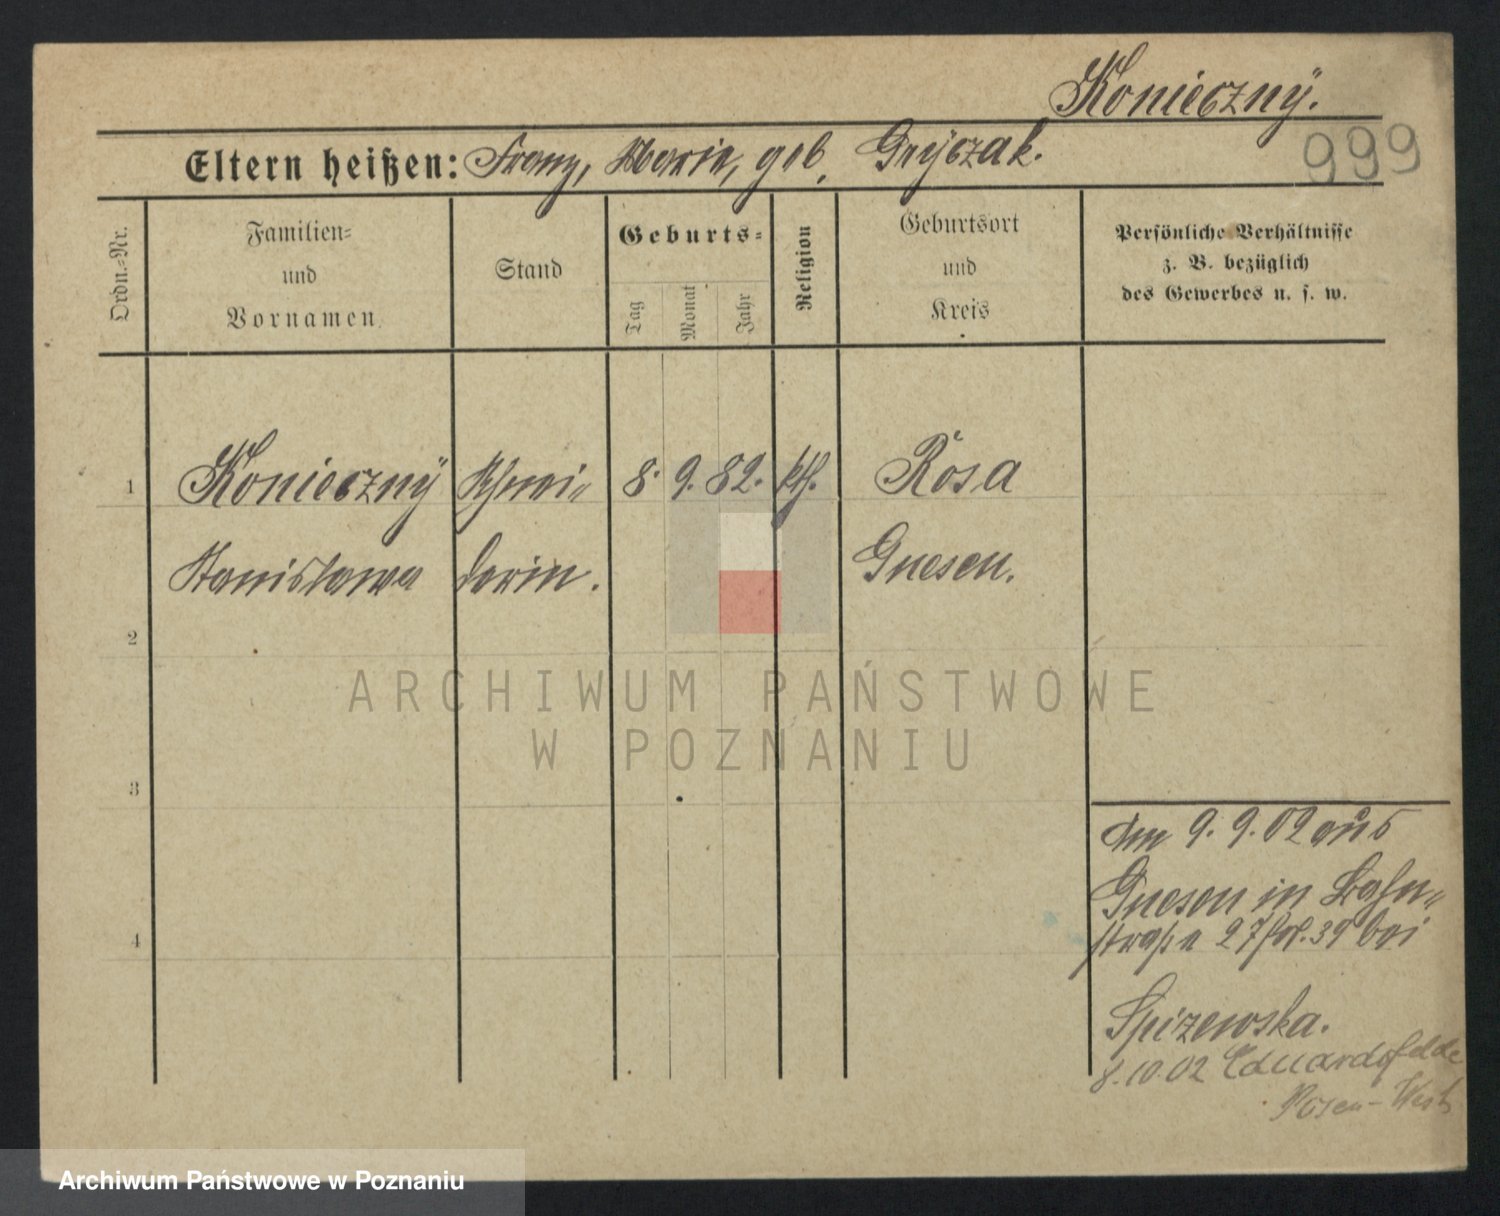 Konieczny.
999
Eltern heißen: Franz, Maria, geb. Gryczak.
Ordn.=Nr.
Familien=
und
Vornamen
Stand
Geburts=
Tag
Monat
Jahr
Religion
Geburtsort
und
Kreis
Persönliche Verhältnisse
z. B. bezüglich
des Gewerbes u. s. w.
1 Konieczny Schnei= 8. 9. 82. kth. Rosa
Stanislawa derin. Gnesen.
2
3
4
Am 9. 9. 02 aus
Gnesen in Bahn=
straße 27 39 bei
Spizewska.
8.10.02 Eduardsfelde
Posen-West
ARCHIWUM PAŃSTWOWE
W POZNANIU
Archiwum Państwowe w Poznaniu